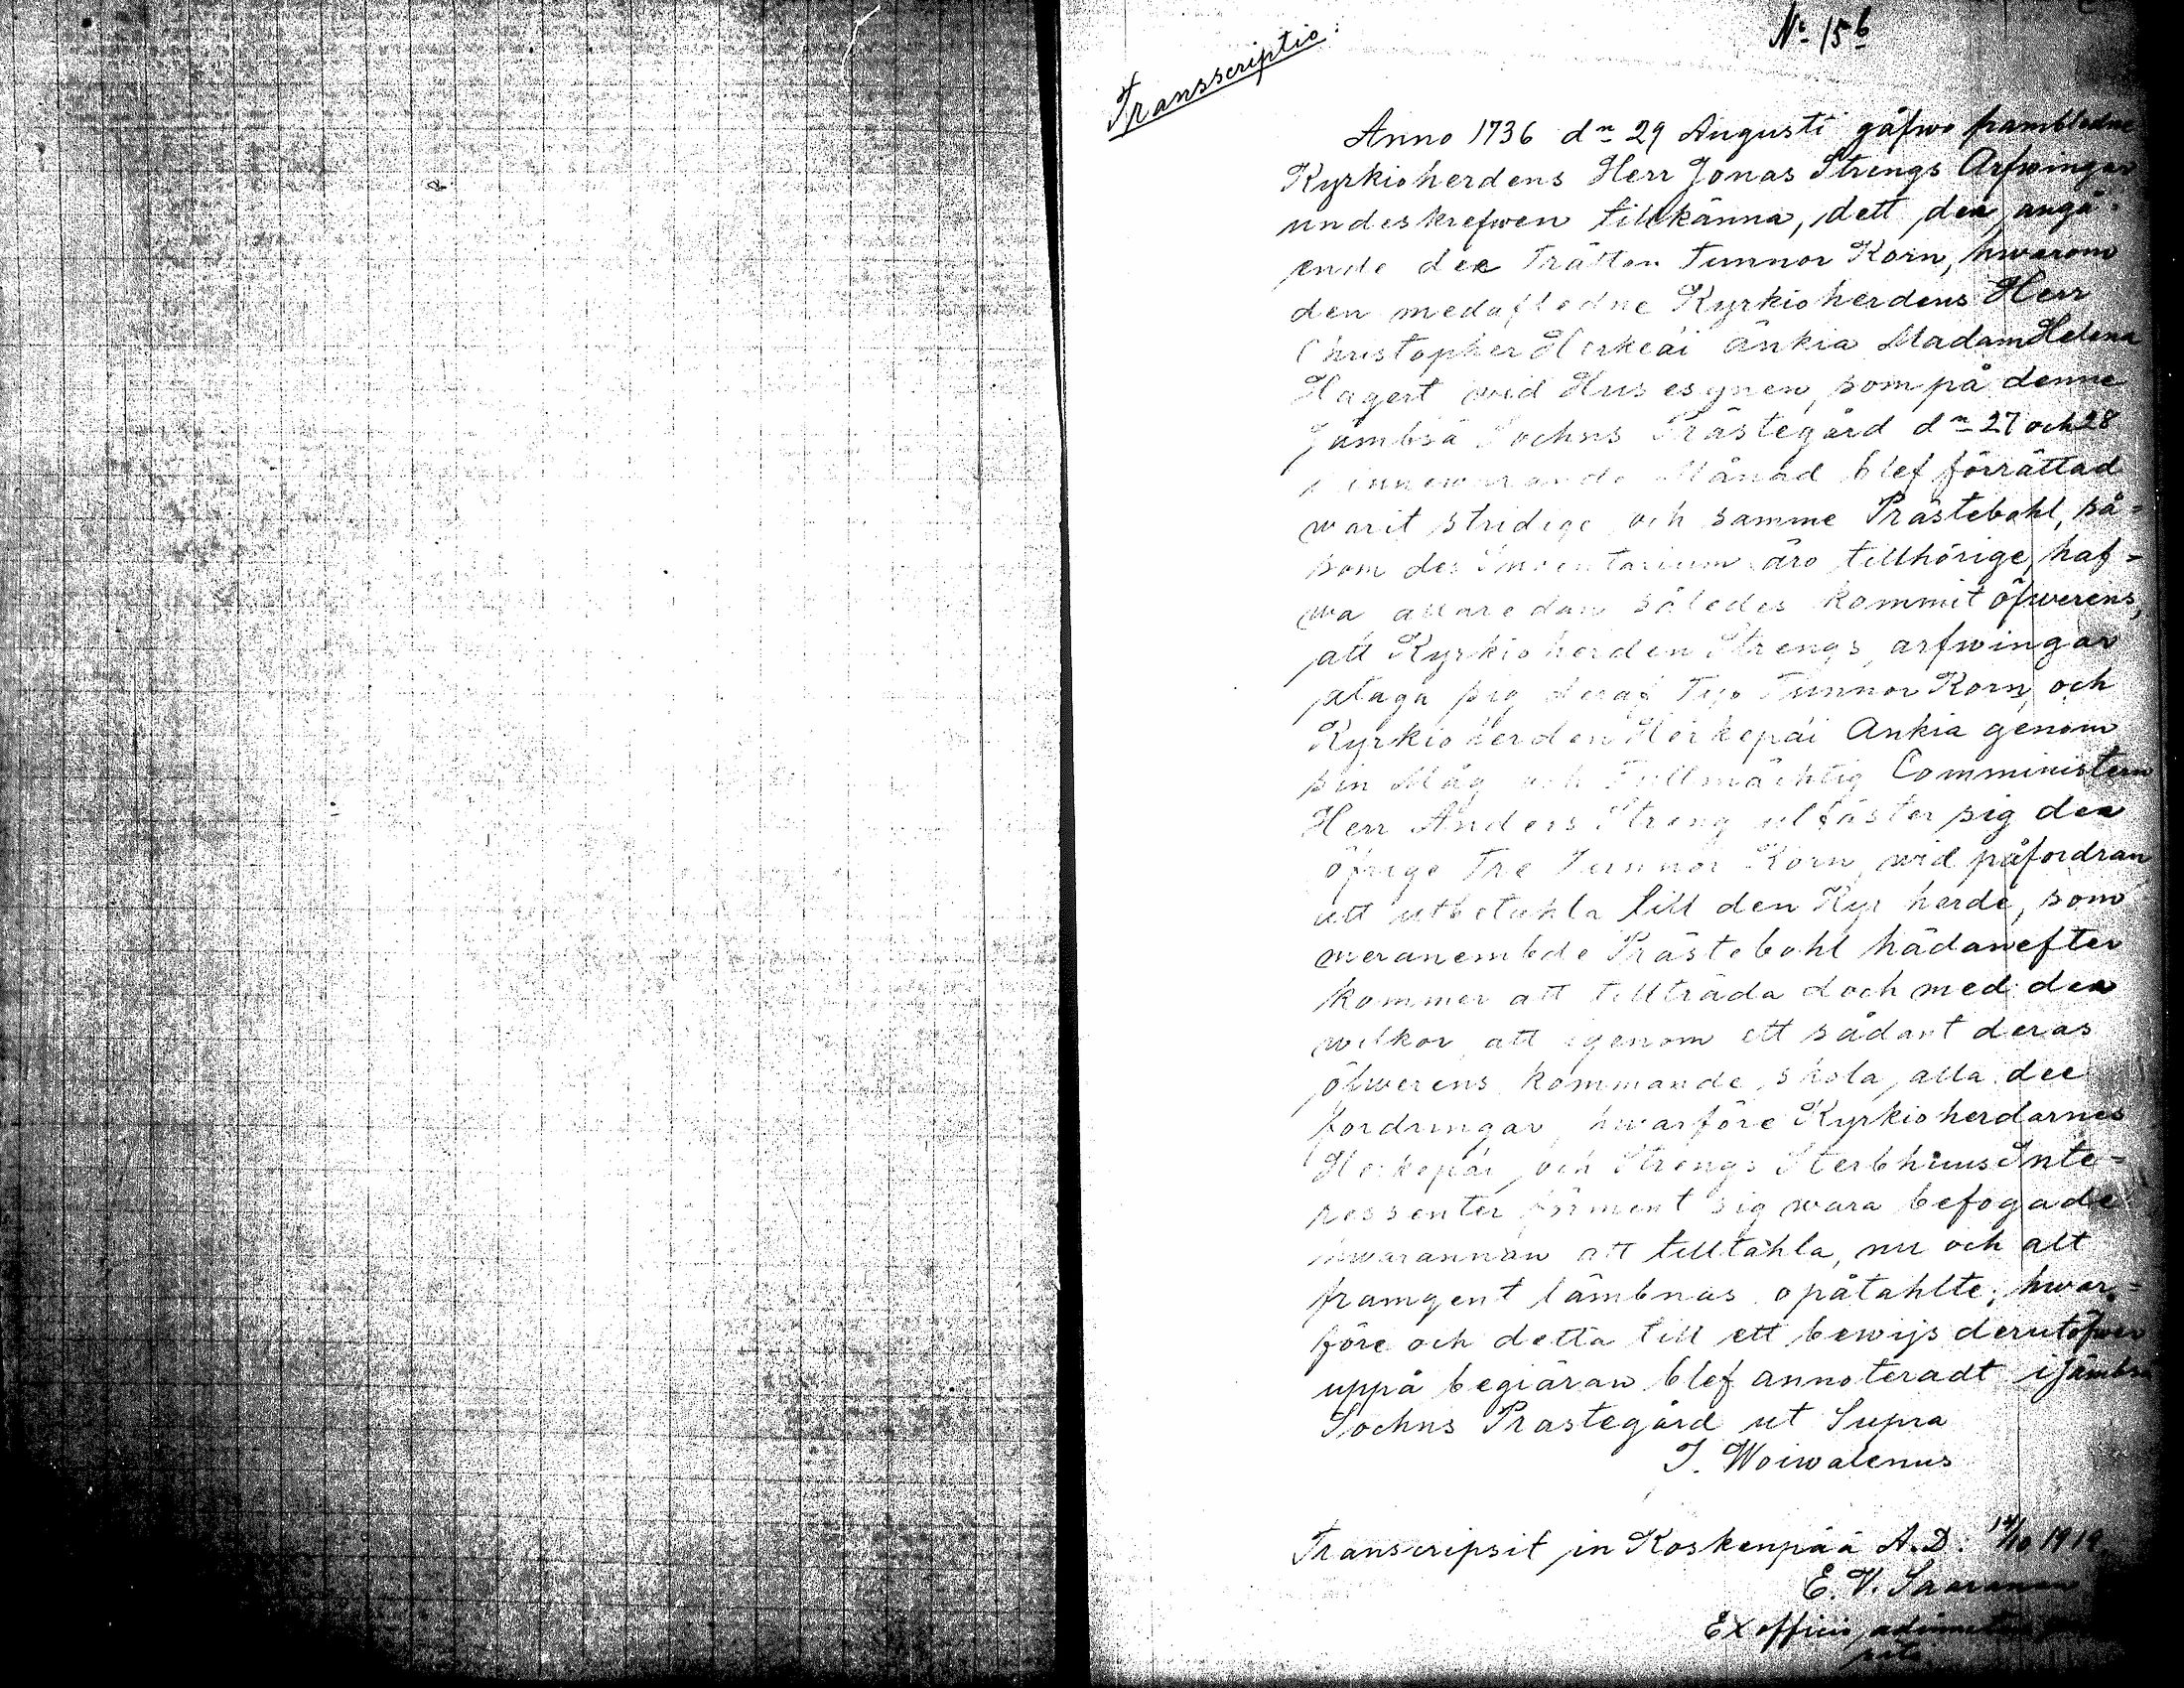 Nº 15 b
Transscriptio:
Anno 1736 dn 29 Augusti gåfwo frambledne
Kyrkioherdens Herr Jonas Strengs Arfwingar
undeskrefwen tillkänna, dett den, angå-
ende dee Trätton Tunnor Korn, hwarom
den medafledne Kyrkioherdens Herr
Christopher Herkepäi änkia Madam Helena
Hagert wid Husesynen, som på denne
Jämbsä Sochns Prästegård dn 27 och 28
innewarande Månad blef förrättad
warit stridige och samme Prästebohl, så=
som des Inventarium äro tillhörige, haf=
wa allaredan således kommit öfwerens,
att Kyrkioherden Strengs arfwingar
ataga sig deraf Tijo Tunnor Korn, och
Kyrkioherden Herkepäi Ankia genom
sin Måg och Fullmächtig Comministern
Herr Anders Streng utfäster sig dee
öfrige Tre Tunnor Korn, wid påfordran
att utbetahla till den Kyrherde, som
meranembde Prästebohl hädanefter
kommer att tillträda doch med den
wilkor, att igenom ett sådant deras
öfwerens kommande, skola, alla dee
fordringar, hwarföre Kyrkioherdarnes
Herkepäi och Strengs Sterbhuus Inte=
ressenter förment sig wara befogade
hwarannan att tilltahla, nu och alt
framgent lämbnas opåtahlte; hwar=
före och detta till ett bewijs derutöfwer
uppå begiäran blef annoteradt i Jämbsä
Sochns Prästegård ut Supra
J. Woiwalenus
Transcripsit in Koskenpää A.D. /10 1919
E. V. Saaranen
Ex officio